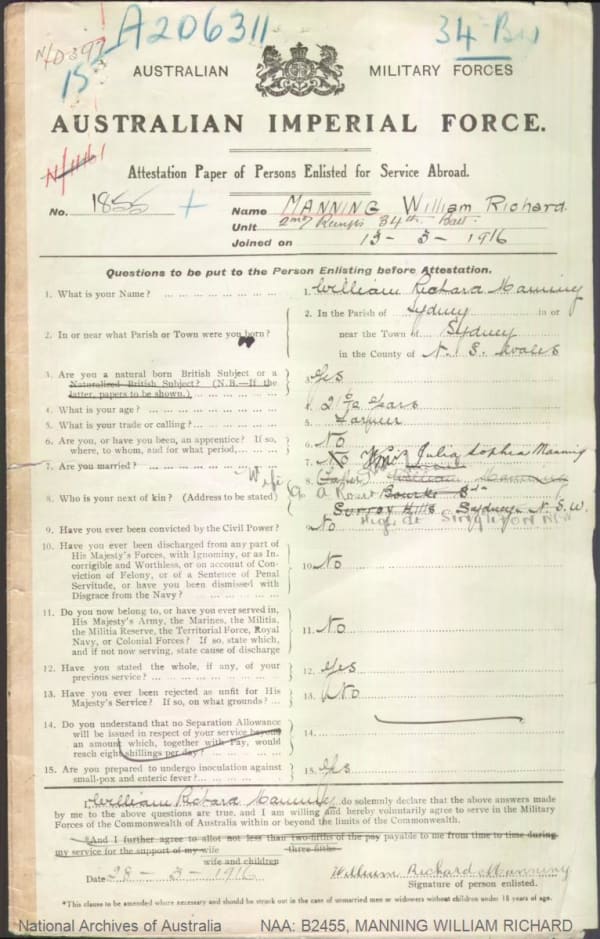 A206311
34 Bn
N/D 399
15
AUSTRALIAN MILITARY FORCES
AUSTRALIAN IMPERIAL FORCE.
Attestation Paper of Persons Enlisted for Service Abroad.
No. 1855 Name MANNING William Richard.
Unit 2nd Reinfs 34th Batt
Joined on 13 - 3 - 1916
Questions to be put to the Person Enlisting before Attestation.
1. What is your Name? 1. William Richard Manning
2. In or near what Parish or Town were you born? 2. In the Parish of Sydney in or
near the Town of Sydney
in the County of N. S. Wales
3. Are you a natural born British Subject or a
Naturalized British Subject? (N.B.—If the
latter, papers to be shown.) 3. Yes
4. What is your age? 4. 21 Years
5. What is your trade or calling? 5.
6. Are you, or have you been, an apprentice? If so,
where, to whom, and for what period, 6. No
7. Are you married? 7. No Julia Sophia Manning
8. Who is your next of kin? (Address to be stated) Wife (Father) William Manning
Bourke St
Surrey Hills Sydney N. S. W.
High St Singleton NSW
9. Have you ever been convicted by the Civil Power? 9. No
10. Have you ever been discharged from any part of
His Majesty's Forces, with Ignominy, or as In-
corrigible and Worthless, or on account of Con-
viction of Felony, or of a Sentence of Penal
Servitude, or have you been dismissed with
Disgrace from the Navy? 10. No
11. Do you now belong to, or have you ever served in,
His Majesty's Army, the Marines, the Militia,
the Militia Reserve, the Territorial Force, Royal
Navy, or Colonial Forces? If so, state which,
and if not now serving, state cause of discharge 11. No
12. Have you stated the whole, if any, of your
previous service? 12. Yes
13. Have you ever been rejected as unfit for His
Majesty's Service? If so, on what grounds? 13. No
14. Do you understand that no Separation Allowance
will be issued in respect of your service beyond
an amount which, together with Pay, would
reach eight shillings per day? 14.
15. Are you prepared to undergo inoculation against
small-pox and enteric fever? 15. Yes
I, William Richard Manning do solemnly declare that the above answers made
by me to the above questions are true, and I am willing and hereby voluntarily agree to serve in the Military
Forces of the Commonwealth of Australia within or beyond the limits of the Commonwealth.
*And I further agree to allot not less than two-fifths of the pay payable to me from time to time during
three-fifths
my service for the support of my wife
wife and children
Date 28 - 3 - 1916 William Richard Manning
Signature of person enlisted.
*This clause to be amended where necessary and should be struck out in the case of unmarried men or widowers without children under 18 years of age.
National Archives of Australia NAA: B2455, MANNING WILLIAM RICHARD